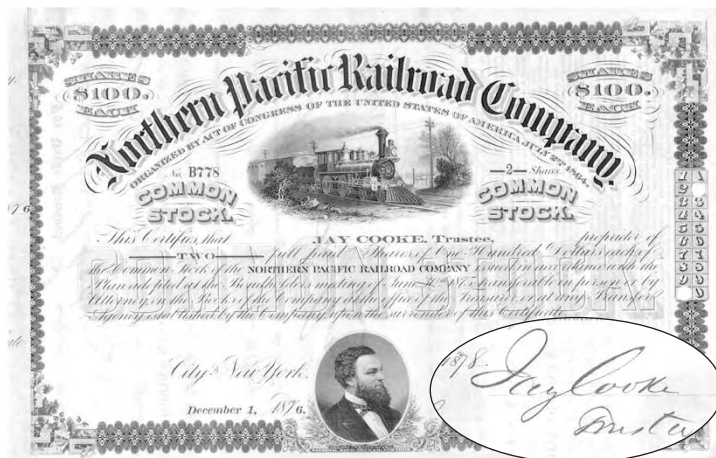 SHARES
$100.
EACH
SHARES
$100.
EACH
Northern Pacific Railroad Company.
ORGANIZED BY ACT OF CONGRESS OF THE UNITED STATES OF AMERICA, JULY 2ND 1864.
No. B778
COMMON
STOCK.
—2— Shares
COMMON
STOCK.
This Certifies that JAY COOKE, Trustee, proprietor of
TWO full paid Shares of One Hundred Dollars each of
the Common Stock of the NORTHERN PACIFIC RAILROAD COMPANY issued in accordance with the
Plan adopted at the Bondholders meeting of June 30th 1875 transferable in person or by
Attorney, on the Books of the Company at the office of the Treasurer or at any Transfer
Agency established by the Company, upon the surrender of this Certificate.
City of New York,
December 1, 1876.
1878.
Jay Cooke
Trustee